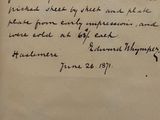 pricked sheet by sheet and plate
plate from early impressions, and
were sold at 6/- each
Edward Whymper
Haslemere
June 26. 1871.